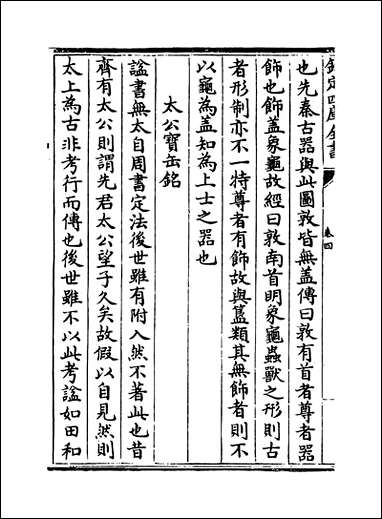 欽定四庫全書
卷四
也先秦古器與此圖敦皆無蓋傳曰敦有首者尊者器
飾也飾蓋象龜故經曰敦南首明象龜蟲獸之形則古
者形制亦不一特尊者有飾故與簋類其無飾者則不
以龜為蓋知為上士之器也
太公寶缶銘
諡書無太自周書定法後世雖有附入然不著此也昔
齊有太公則謂先君太公望子久矣故假以自見然則
太上為古非考行而傳也後世雖不以此考諡如田和